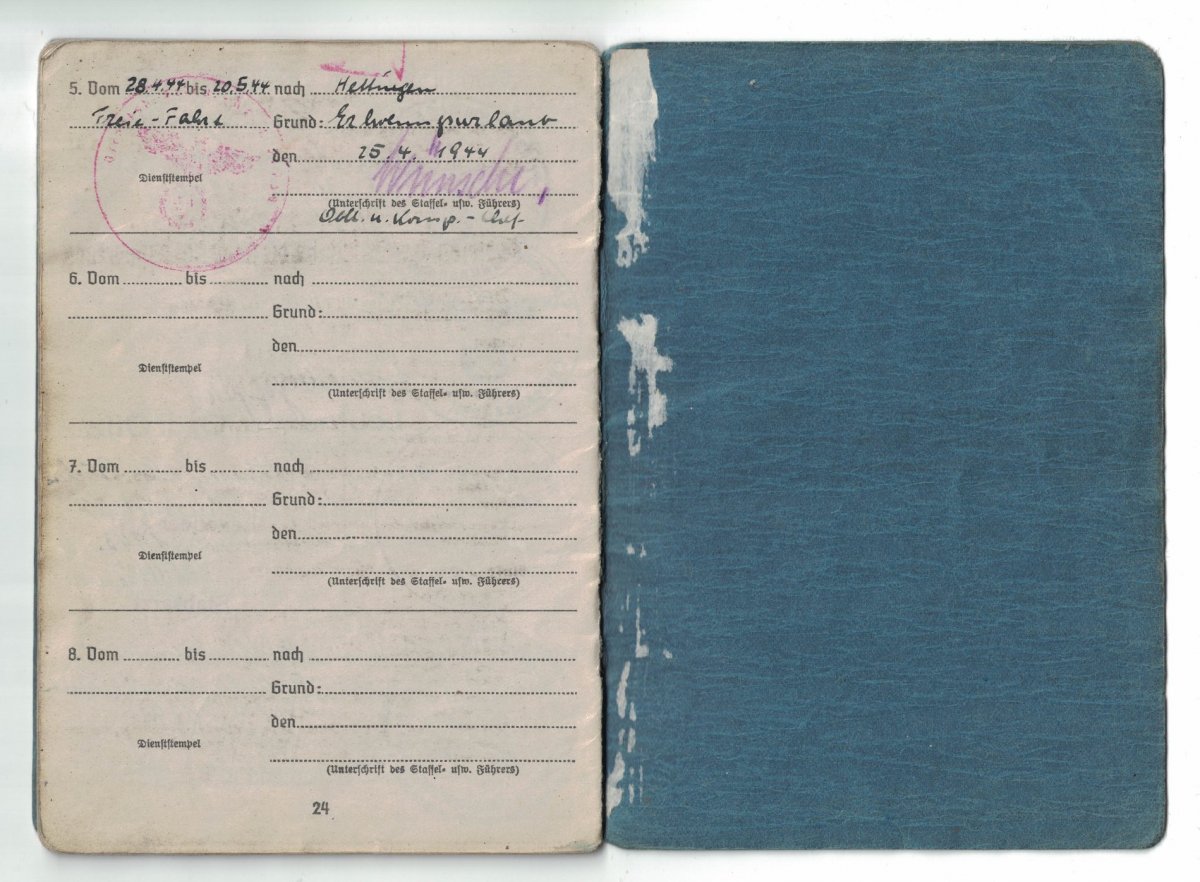 5. Vom 28.4.44 bis 20.5.44 nach Hettingen
Freie-Fahrt Grund: Erholungsurlaub
den 25.4.1944
Dienststempel
Wünsche,
(Unterschrift des Staffel- usw. Führers)
Oblt. u. Komp.-Chef
6. Vom bis nach
Grund:
den
Dienststempel
(Unterschrift des Staffel- usw. Führers)
7. Vom bis nach
Grund:
den
Dienststempel
(Unterschrift des Staffel- usw. Führers)
8. Vom bis nach
Grund:
den
Dienststempel
(Unterschrift des Staffel- usw. Führers)
24